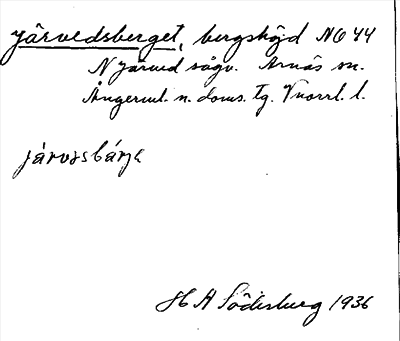 Järvedsberget, bergshöjd NO 44
N Järved sågv. Arnäs sn.
Ångerml. n. doms. tg. Vnorrl. l.
järvssbárje
H A Söderberg 1936